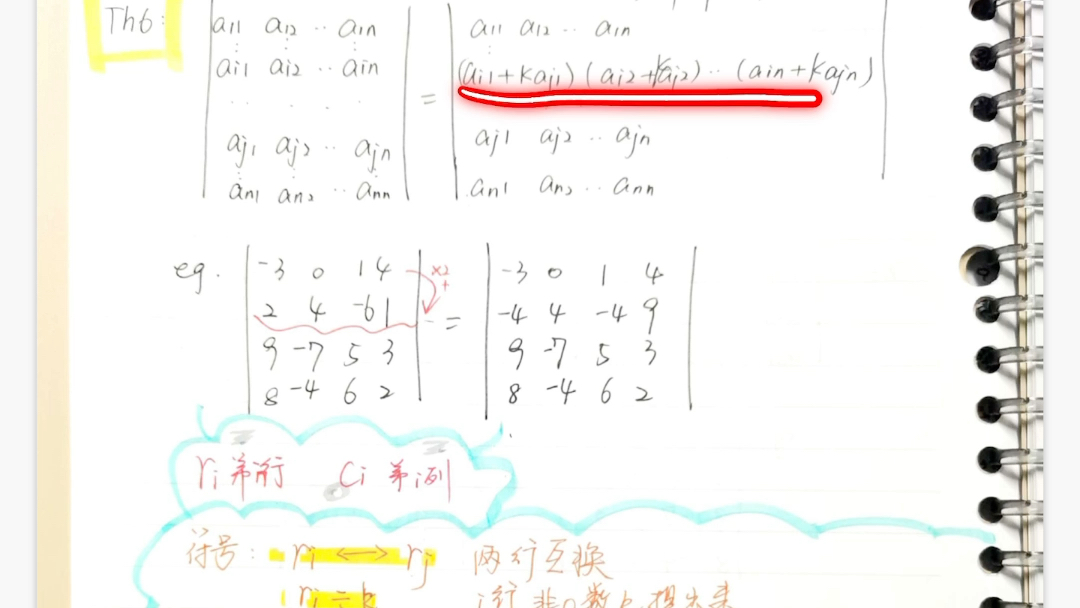 Th6:
a11 a12 ·· a1n
ai1 ai2 ·· ain
· · · ·
aj1 aj2 ·· ajn
an1 an2 ·· ann
=
a11 a12 ·· a1n
(ai1+kaj1) (ai2+kaj2) ·· (ain+kajn)
aj1 aj2 ·· ajn
an1 an2 ·· ann
eg.
-3 0 1 4
2 4 -6 1
9 -7 5 3
8 -4 6 2
×2
+
=
-3 0 1 4
-4 4 -4 9
9 -7 5 3
8 -4 6 2
ri 第i行 Ci 第i列
符号: ri ↔ rj 两行互换
ri ÷ k i行非0数k提出来